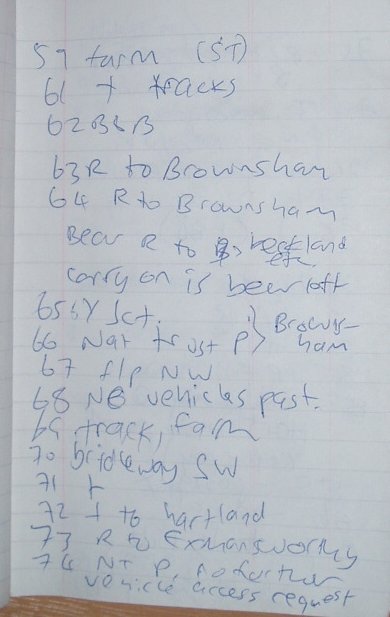 59 farm (ST)
61 + tracks
62 B&B
63 R to Brownsham
64 R to Brownsham
Bear R to Beckland etc
carry on is bear left
65 sY Jct.
66 Nat trust P } Brownsham
67 f/p NW
68 NO vehicles past.
69 track, farm
70 bridleway SW
71 t
72 t to hartland
73 R to Exmansworthy
74 NT P, no further
vehicle access request